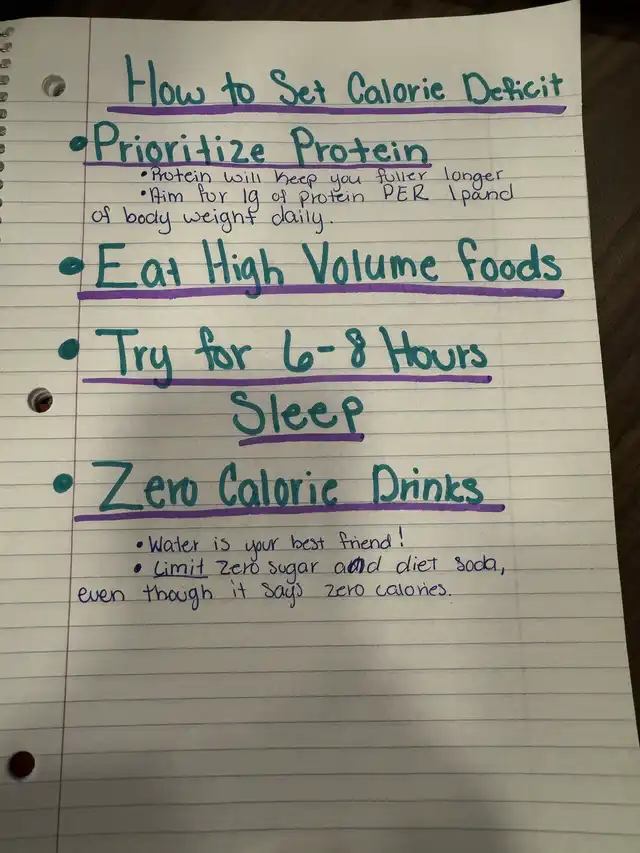 How to Set Calorie Deficit
• Prioritize Protein
• Protein will keep you fuller longer
• Aim for 1g of protein PER 1 pound
of body weight daily.
• Eat High Volume foods
• Try for 6-8 Hours
Sleep
• Zero Calorie Drinks
• Water is your best friend!
• Limit Zero sugar and diet soda,
even though it says zero calories.